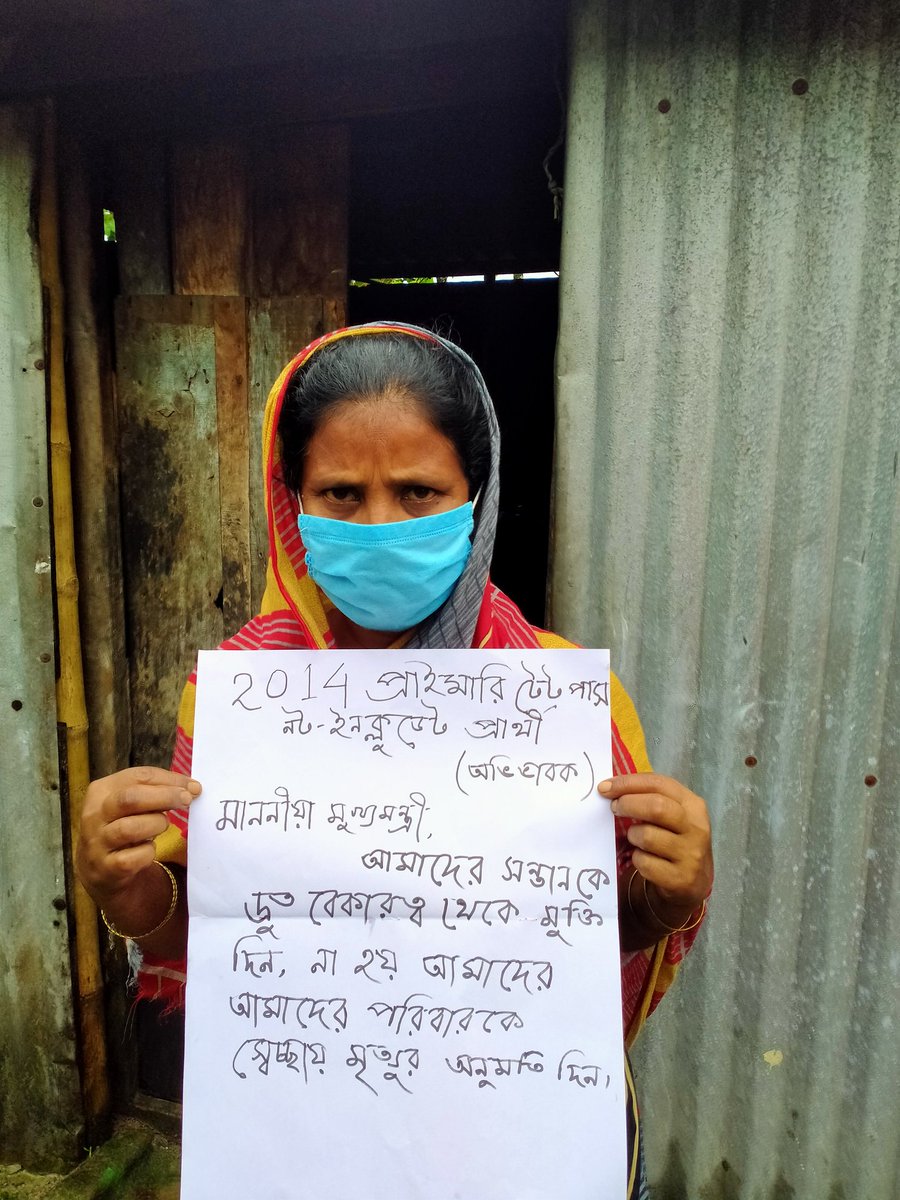 2014 প্রাইমারি টেট পাস
নট-ইনক্লুডেট প্রার্থী
(অভিভাবক)
মাননীয়া মুখ্যমন্ত্রী,
আমাদের সন্তানকে
দ্রুত বেকারত্ব থেকে মুক্তি
দিন, না হয় আমাদের
আমাদের পরিবারকে
স্বেচ্ছায় মৃত্যুর অনুমতি দিন।